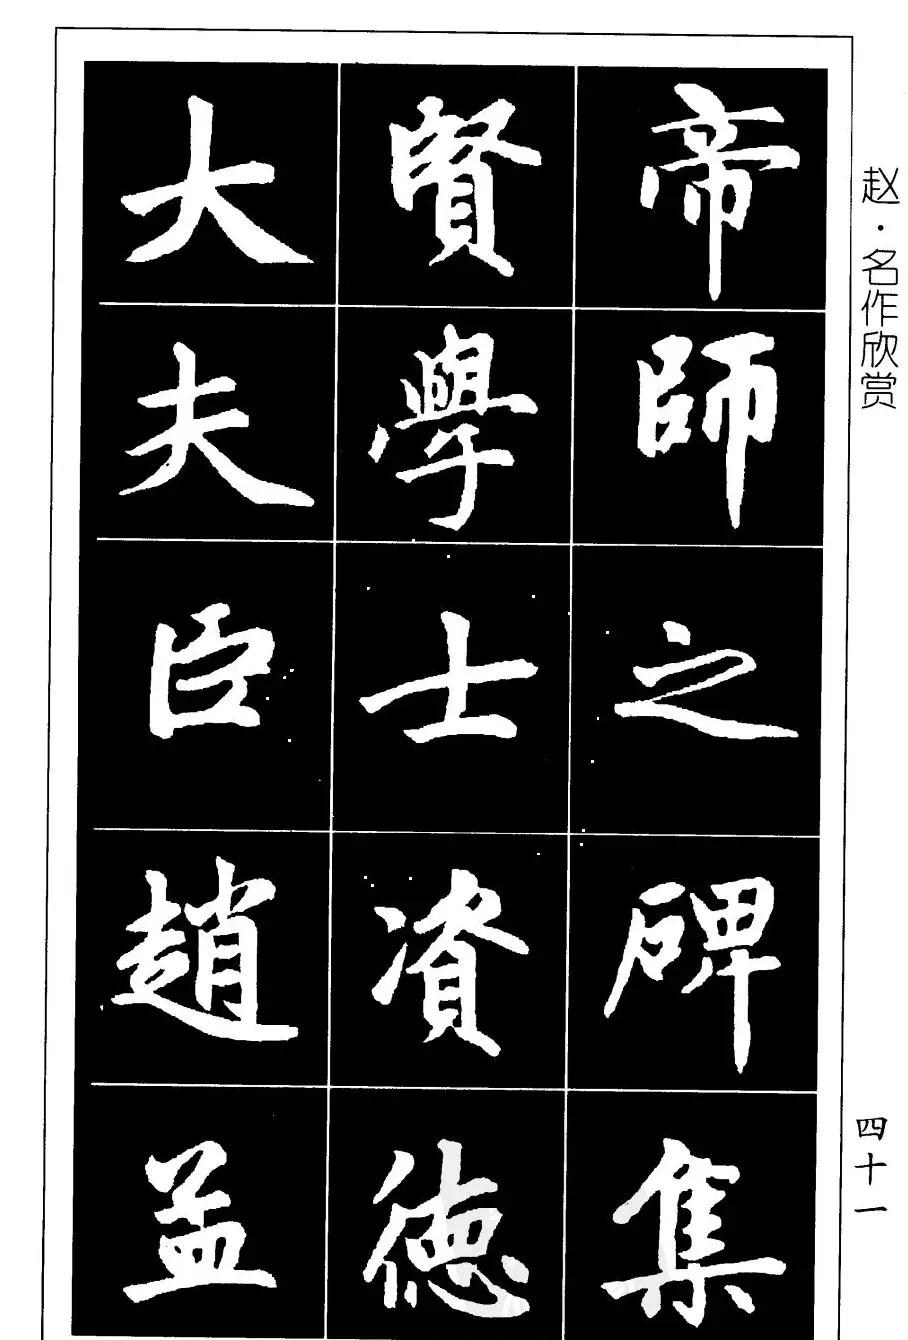 帝師之碑集
賢學士資德
大夫臣趙孟
赵·名作欣赏
四十一